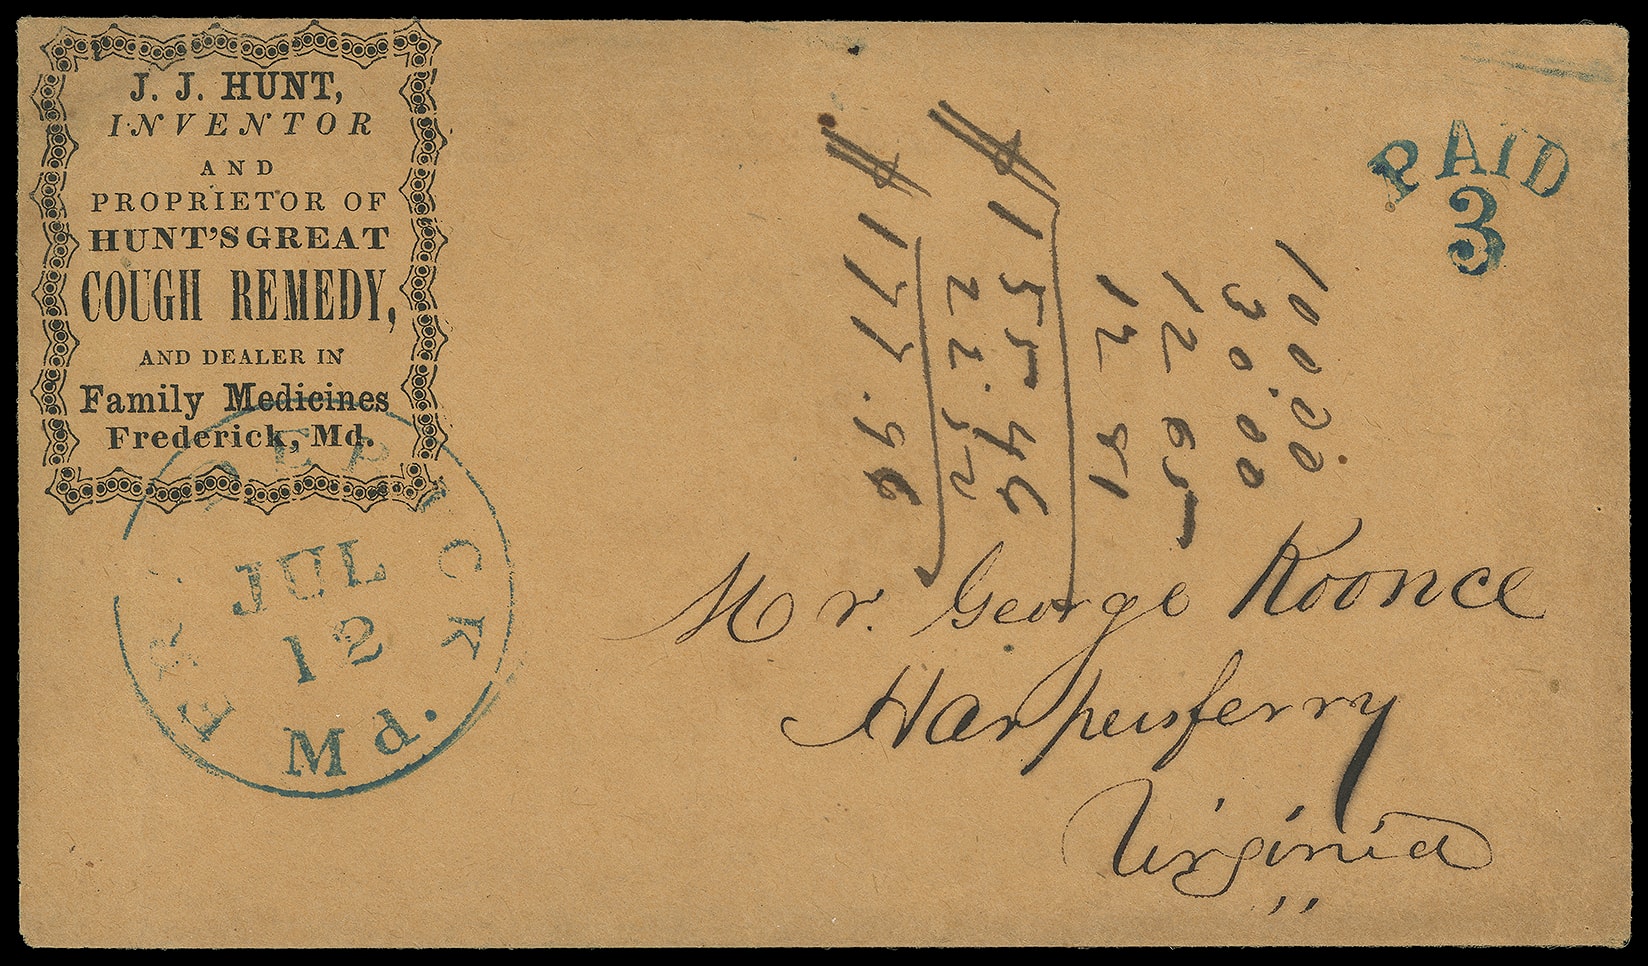 J. J. HUNT,
INVENTOR
AND
PROPRIETOR OF
HUNT'S GREAT
COUGH REMEDY,
AND DEALER IN
Family Medicines
Frederick, Md.
PAID
3
100.00
30.00
12 65
12 81
$155.46
22.50
$177.96
FREDERICK
JUL
12
Md.
Mr. George Koonce
Harpersferry
Virginia